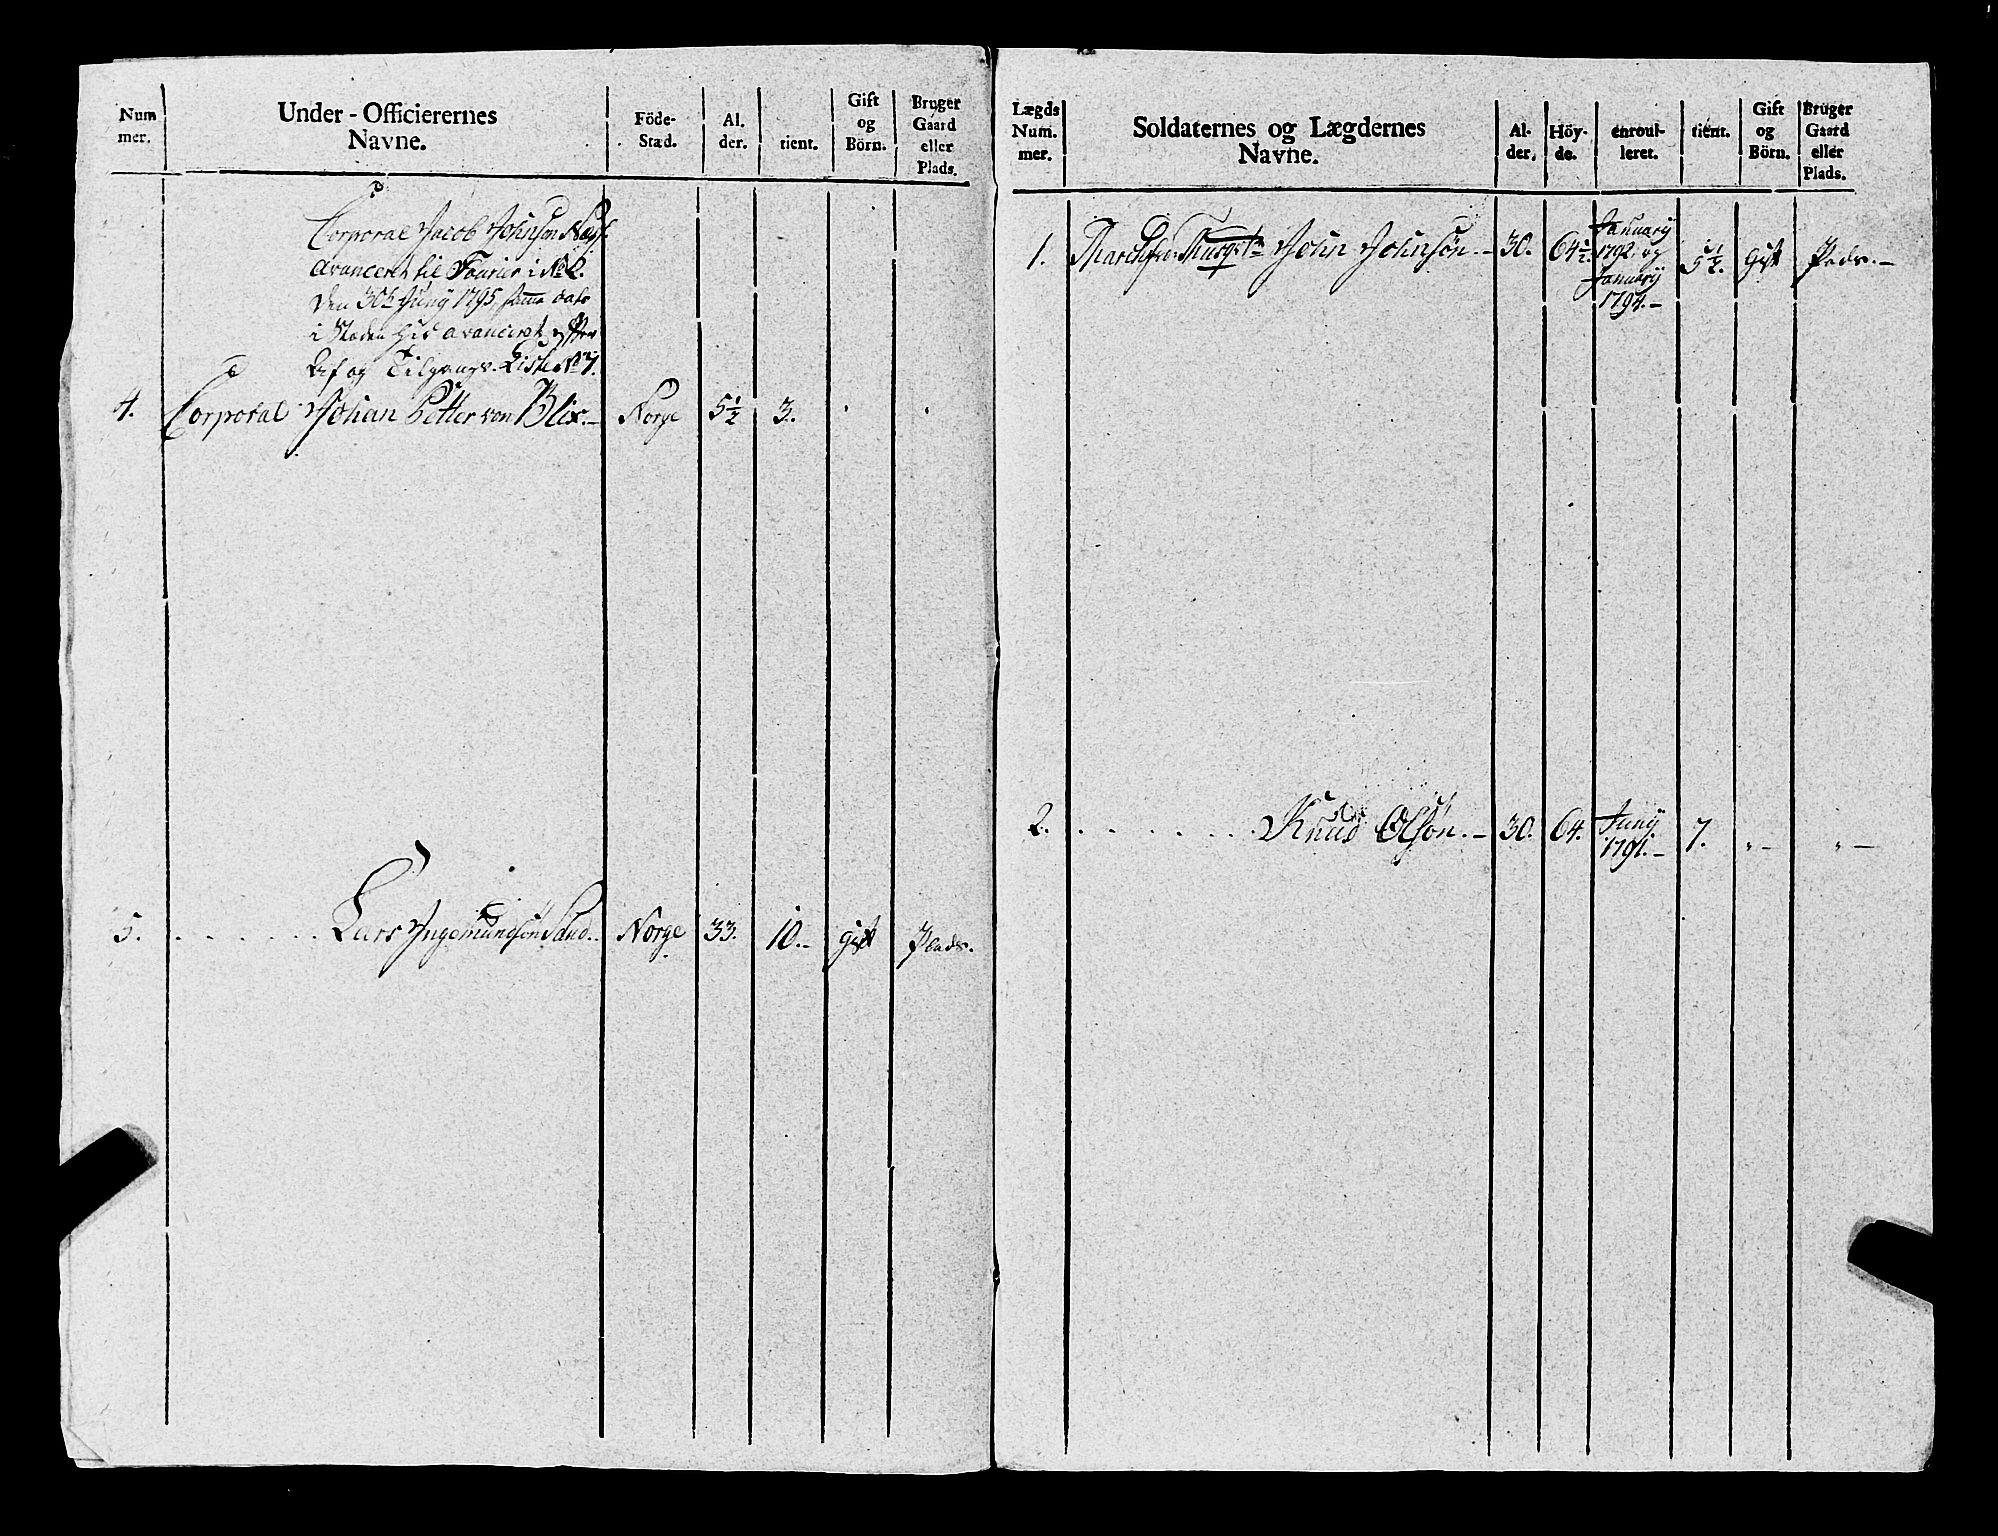 Num
mer.
Under-Officierernes
Navne.
Föde-
Stæd.
Al.
der.
tient.
Gift
og
Börn.
Bruger
Gaard
eller
Plads.
Corporal Jacob Johnson
avanceret til Fourier i No 2.
den 30t Juny 1795, samme dato
i Steden his avanceret efter
Af og Tilgangs-Liste No 7.
4. Corporal Johan Petter von Blix.- Norge 5½ 3.
5. Lars Ingemundsøn Sand.. Norge 33. 10.- gift Plads.
Lægds
Num.
mer.
Soldaternes og Lægdernes
Navne.
Al-
der.
Höy-
de.
enroul-
leret.
tient.
Gift
og
Börn.
Bruger
Gaard
eller
Plads.
1. John Johnsøn.- 30. 64½. January
1792. og
January
1794.- 5½. gift Plads.-
2. Knud Olsøn.- 30. 64. Juny
1791.- 7. "- "-